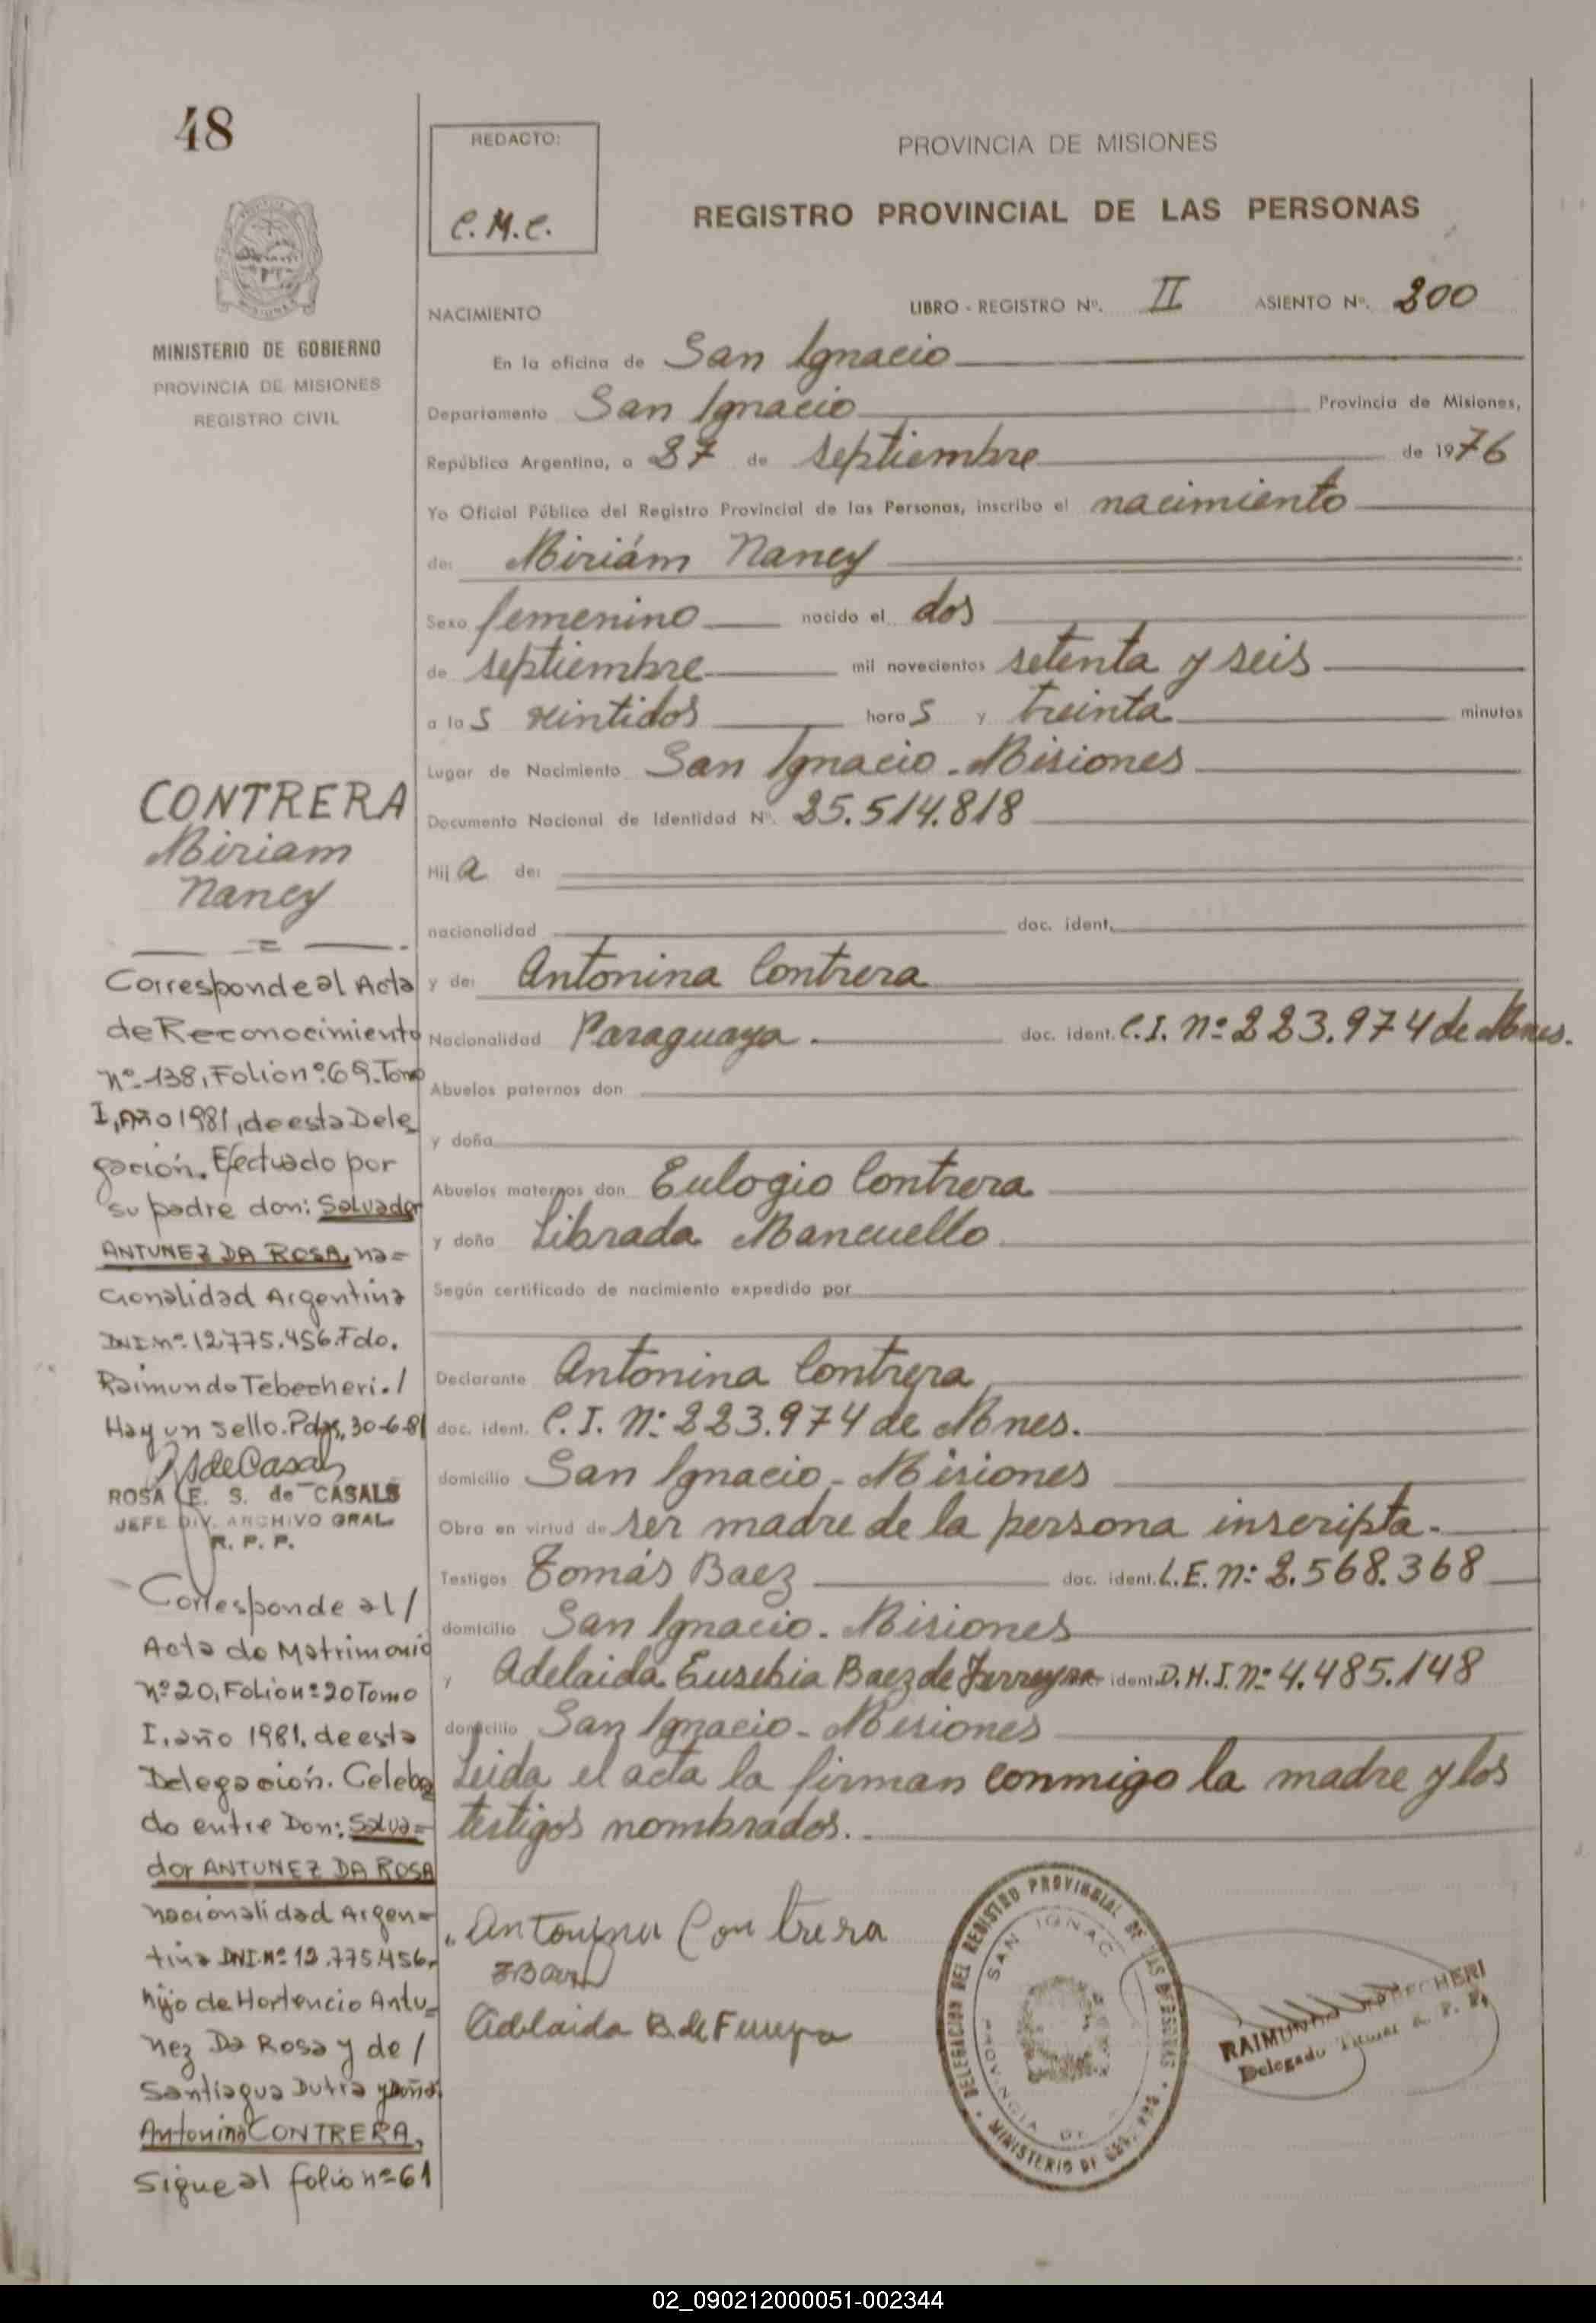 48
REDACTO:
C.M.C.
PROVINCIA DE MISIONES
REGISTRO PROVINCIAL DE LAS PERSONAS
MINISTERIO DE GOBIERNO
PROVINCIA DE MISIONES
REGISTRO CIVIL
NACIMIENTO LIBRO - REGISTRO Nº. II ASIENTO Nº. 200
En la oficina de San Ignacio
Departamento San Ignacio Provincia de Misiones,
República Argentina, a 27 de septiembre de 1976
Yo Oficial Público del Registro Provincial de las Personas, inscribo el nacimiento
de: Miriám Nancy
Sexo femenino nacido el dos
de septiembre mil novecientos setenta y seis
a las veintidos horas y treinta minutos
Lugar de Nacimiento San Ignacio - Misiones
Documento Nacional de Identidad Nº. 25.514.818
Hija de:
nacionalidad doc. ident.
y de: Antonina Contrera
Nacionalidad Paraguaya. doc. ident. C.I. Nº 223.974 de Mnes.
Abuelos paternos don
y doña
Abuelos maternos don Eulogio Contrera
y doña Librada Mancuello
Según certificado de nacimiento expedido por
Declarante Antonina Contrera
doc. ident. C.I. Nº 223.974 de Mnes.
domicilio San Ignacio - Misiones
Obra en virtud de ser madre de la persona inscripta.
Testigos Tomás Baez doc. ident. L.E. Nº 2.568.368
domicilio San Ignacio - Misiones
y Adelaida Eusebia Baez de Ferreyra ident. D.N.I. Nº 4.485.148
domicilio San Ignacio - Misiones
Leida el acta la firman conmigo la madre y los
testigos nombrados.
Antonina Contrera
Adelaida B. de Ferreyra
DELEGACION DEL REGISTRO PROVINCIAL DE LAS PERSONAS
SAN IGNAC
MINISTERIO DE
RAIMUNDO TEBECHERI
Delegado R. P. P.
CONTRERA
Miriam
Nancy
Corresponde al Acta
de Reconocimiento
Nº 138, Folio nº 69. Tomo
I, Año 1981, de esta Dele
gación. Efectuado por
su padre don: Salvador
ANTUNEZ DA ROSA, na=
cionalidad Argentina
DNI. nº 12.775.456. Fdo.
Raimundo Tebecheri. /
Hay un sello. Pdas, 30-6-81
ROSA E. S. de CASALS
JEFE DIV. ARCHIVO GRAL.
R. P. P.
Corresponde al /
Acta de Matrimonio
nº 20, Folio nº 20 Tomo
I, año 1981, de esta
Delegación. Celebra
do entre Don: Salva=
dor ANTUNEZ DA ROSA
nacionalidad Argen=
tina DNI. Nº 12.775.456,
hijo de Hortencio Antu=
nez Da Rosa y de /
Santiagua Dutra y Doña:
Antonina CONTRERA,
Sigue al folio nº 61
02_090212000051-002344